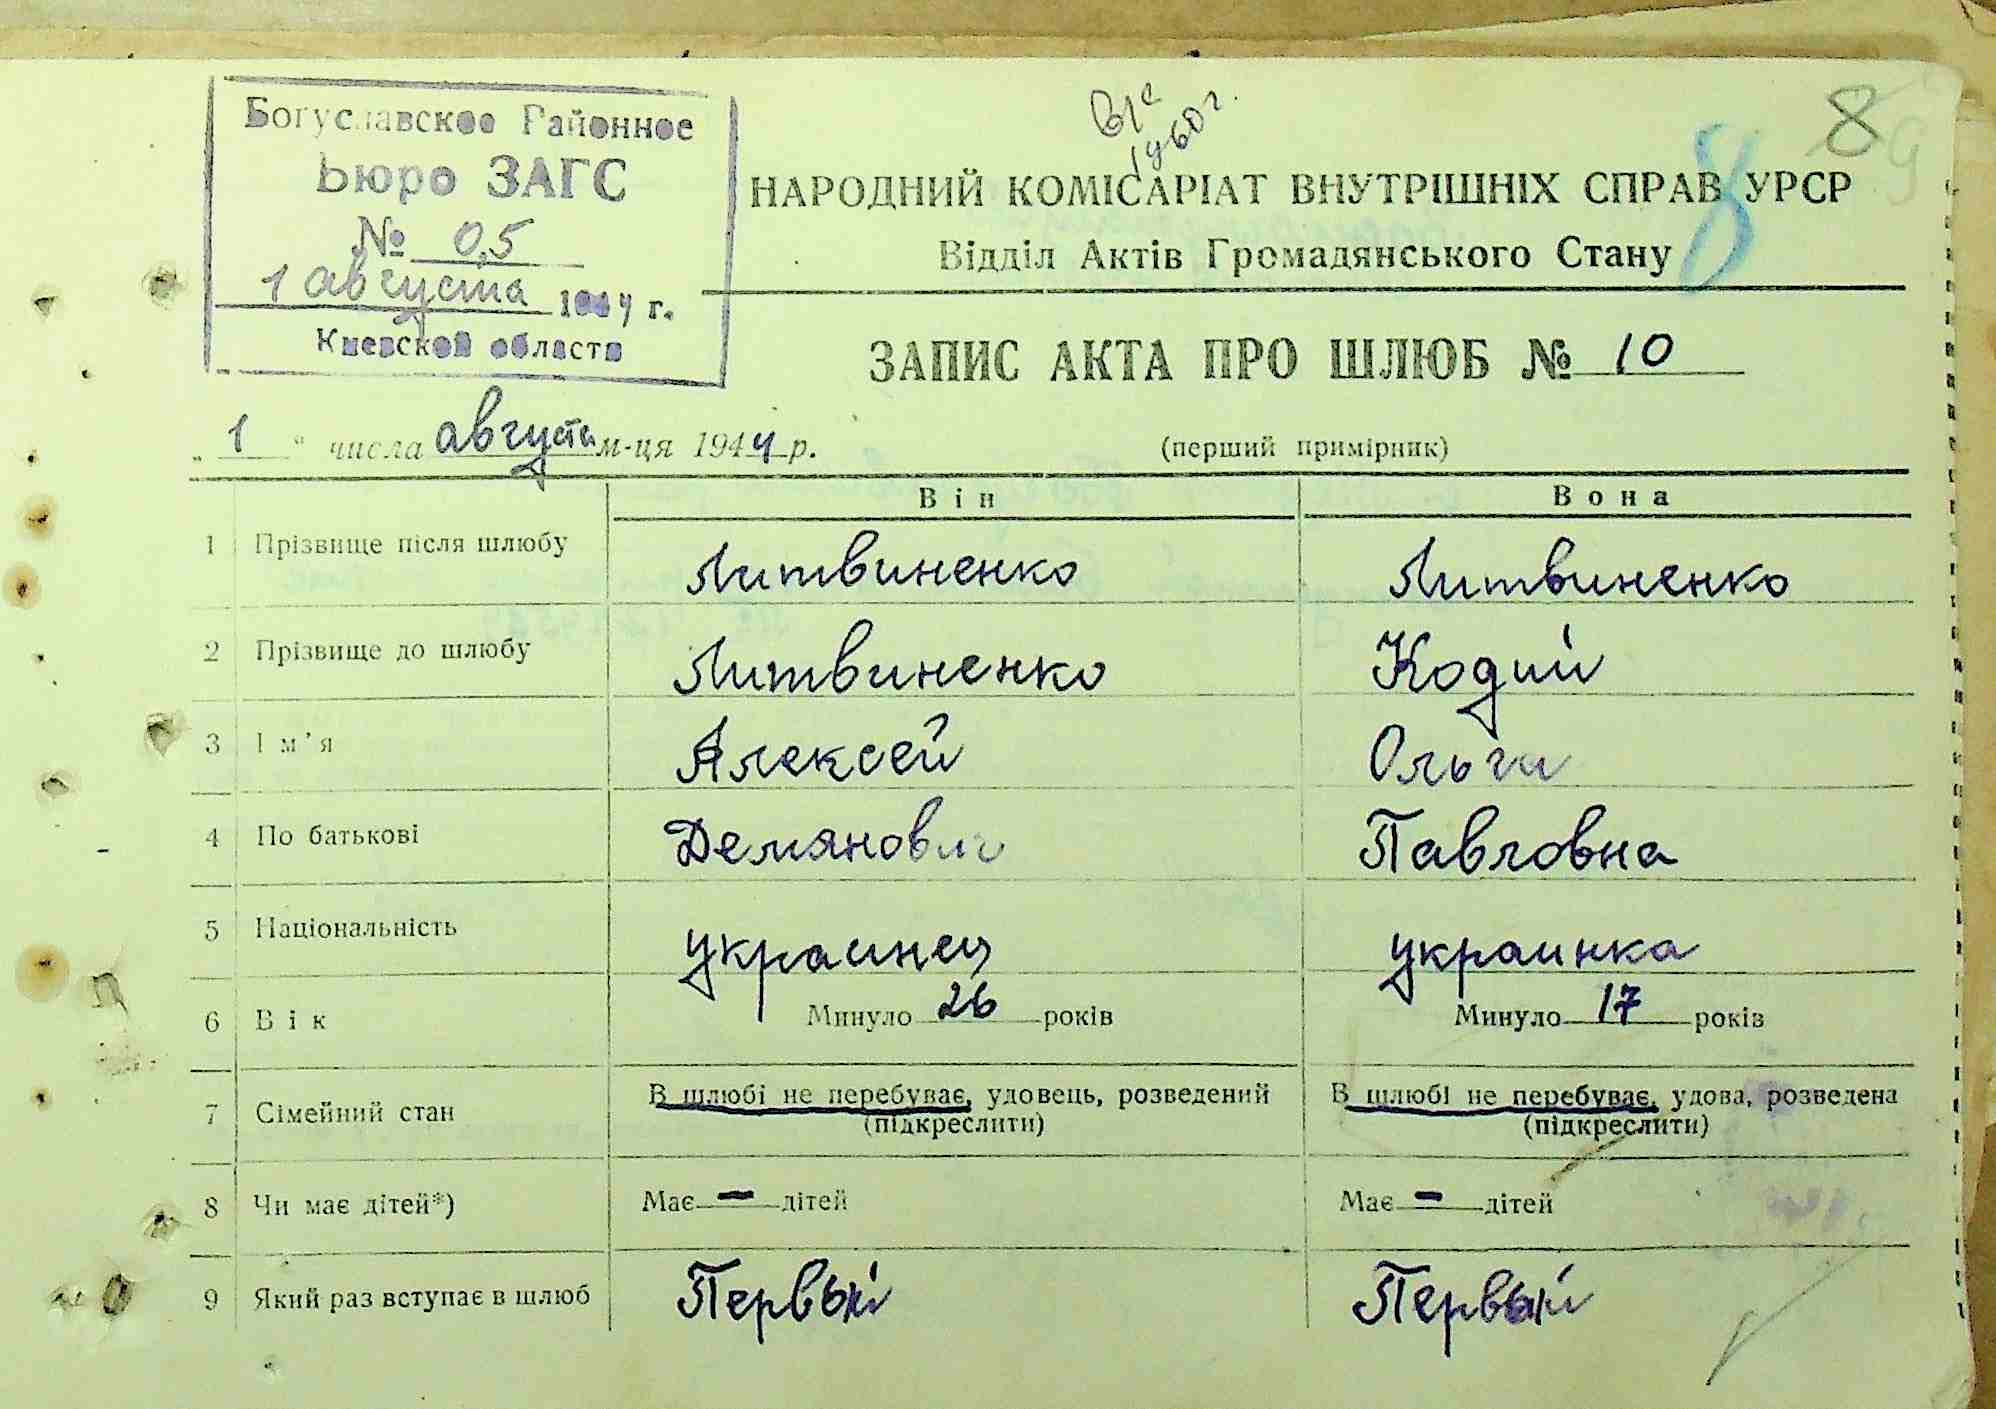 Богуславское Районное
Бюро ЗАГС
№ 0,5
1 августа 1944 г.
Киевской области
8
8
НАРОДНИЙ КОМІСАРІАТ ВНУТРІШНІХ СПРАВ УРСР
Відділ Актів Громадянського Стану
ЗАПИС АКТА ПРО ШЛЮБ № 10
„ 1 “ числа августа м-ця 1944 р. (перший примірник)
Він Вона
1 Прізвище після шлюбу Литвиненко Литвиненко
2 Прізвище до шлюбу Литвиненко Кодий
3 Ім’я Алексей Ольга
4 По батькові Демянович Павловна
5 Національність украинец украинка
6 Вік Минуло 26 років Минуло 17 років
7 Сімейний стан В шлюбі не перебуває, удовець, розведений В шлюбі не перебуває, удова, розведена
(підкреслити) (підкреслити)
8 Чи має дітей*) Має — дітей Має — дітей
9 Який раз вступає в шлюб Первый Первый